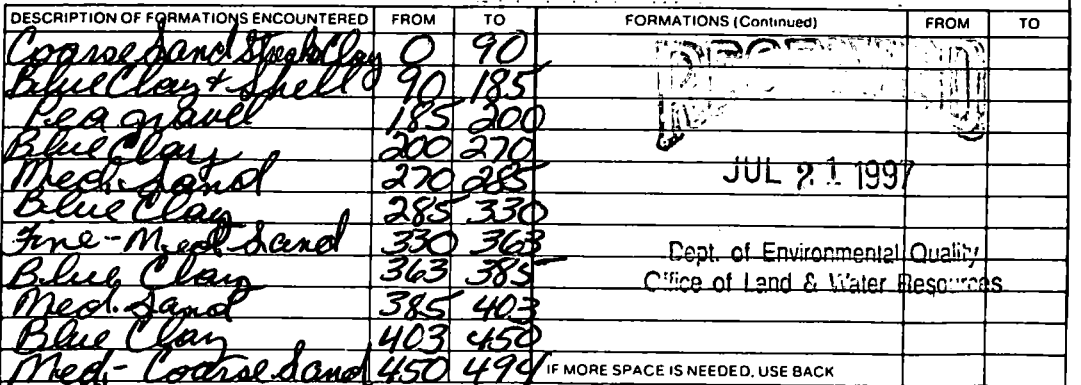 DESCRIPTION OF FORMATIONS ENCOUNTERED FROM TO FORMATIONS (Continued) FROM TO
Coarse Sand Streak Clay 0 90
Blue Clay & Shell 90 185
Pea gravel 185 200
Blue Clay 200 270
Med. Sand 270 285
JUL 21 1997
Blue Clay 285 330
Fine-Med. Sand 330 363
Dept. of Environmental Quality
Blue Clay 363 385
Office of Land & Water Resources
Med. Sand 385 403
Blue Clay 403 450
Med.-Coarse Sand 450 494 IF MORE SPACE IS NEEDED, USE BACK